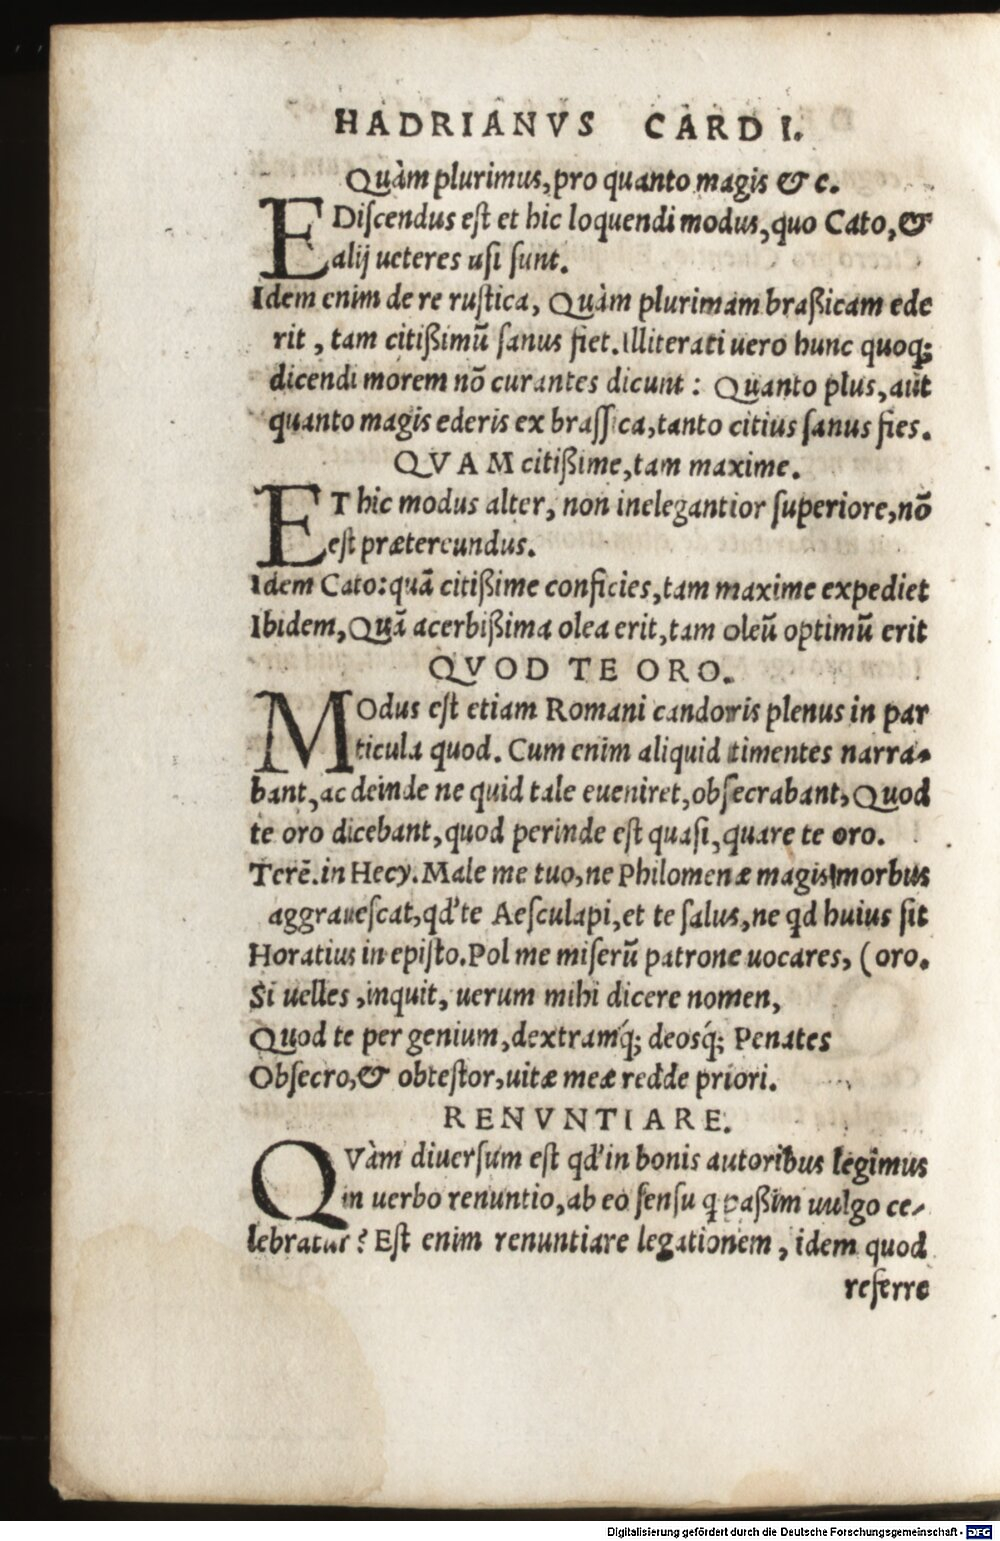 HADRIANVS CARDI.
Quàm plurimus, pro quanto magis & c.
EDiscendus est et hic loquendi modus, quo Cato, &
alij ueteres usi sunt.
Idem enim de re rustica, Quàm plurimam braßicam ede
rit, tam citißimũ sanus fiet. Illiterati uero hunc quoq;
dicendi morem nõ curantes dicunt: Quanto plus, aut
quanto magis ederis ex brassica, tanto citius sanus fies.
QVAM citißime, tam maxime.
ET hic modus alter, non inelegantior superiore, nõ
est prætereundus.
Idem Cato: quã citißime conficies, tam maxime expediet
Ibidem, Quã acerbißima olea erit, tam oleũ optimũ erit
QVOD TE ORO.
MOdus est etiam Romani candoris plenus in par
ticula quod. Cum enim aliquid timentes narra-
bant, ac deinde ne quid tale eueniret, obsecrabant, Quod
te oro dicebant, quod perinde est quasi, quare te oro.
Terẽ. in Hecy. Male me tuo, ne Philomenæ magis morbus
aggrauescat, qd' te Aesculapi, et te salus, ne qd huius sit
Horatius in episto. Pol me miserũ patrone uocares, (oro.
Si uelles, inquit, uerum mihi dicere nomen,
Quod te per genium, dextramq́; deosq́; Penates
Obsecro, & obtestor, uitæ meæ redde priori.
RENVNTIARE.
QVàm diuersum est qd' in bonis autoribus legimus
in uerbo renuntio, ab eo sensu q paßim uulgo ce-
lebratur? Est enim renuntiare legationem, idem quod
referre
Digitalisierung gefördert durch die Deutsche Forschungsgemeinschaft - DFG